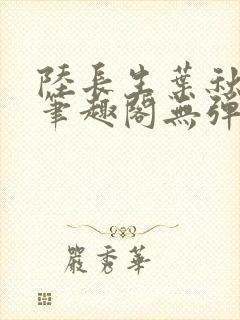 陸長生葉秋
筆趣閣無彈
嚴秀華